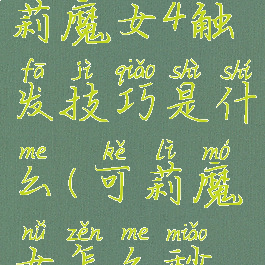 莉魔女4触
fā jì qiǎo shì shí
发技巧是什
me kě lì mó
么(可莉魔
nǚ zěn me miǎo
女怎么秒